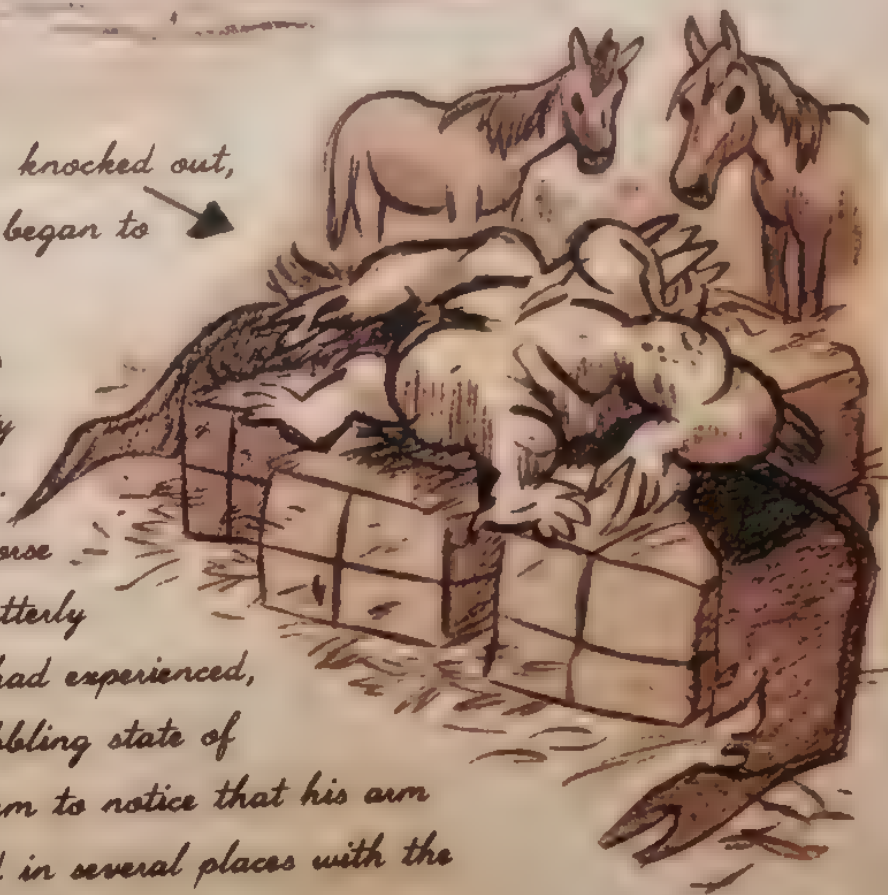 knocked out,
began to
y
orse
utterly
had experienced,
bbling state of
m to notice that his arm
d in several places with the